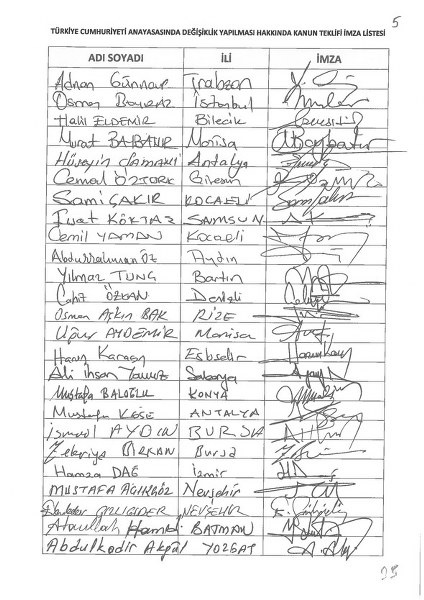 5
TÜRKİYE CUMHURİYETİ ANAYASASINDA DEĞİŞİKLİK YAPILMASI HAKKINDA KANUN TEKLİFİ İMZA LİSTESİ
ADI SOYADI İLİ İMZA
Adnan Günnar Trabzon
Osman Boyraz İstanbul
Halil ELDEMİR Bilecik
Murat BAYBATUR Manisa
Hüseyin Samani Antalya
Cemal ÖZTÜRK Giresun
Sami ÇAKIR KOCAELİ
Fuat KÖKTAŞ SAMSUN
Cemil YAMAN Kocaeli
Abdurrahman ÖZ Aydın
Yılmaz TUNÇ Bartın
Cahit ÖZKAN Denizli
Osman Aşkın BAK RİZE
Uğur AYDEMİR Manisa
Harun Karacan Eskişehir
Ali İhsan Yavuz Sakarya
Mustafa BALOĞLU KONYA
Mustafa KÖSE ANTALYA
İsmail AYDIN BURSA
Zekeriya BİRKAN Bursa
Hamza DAĞ İzmir
MUSTAFA AÇIKGÖZ Nevşehir
GİZLİGİDER NEVŞEHİR
Ataullah Hamidi BATMAN
Abdulkadir Akgül YOZGAT